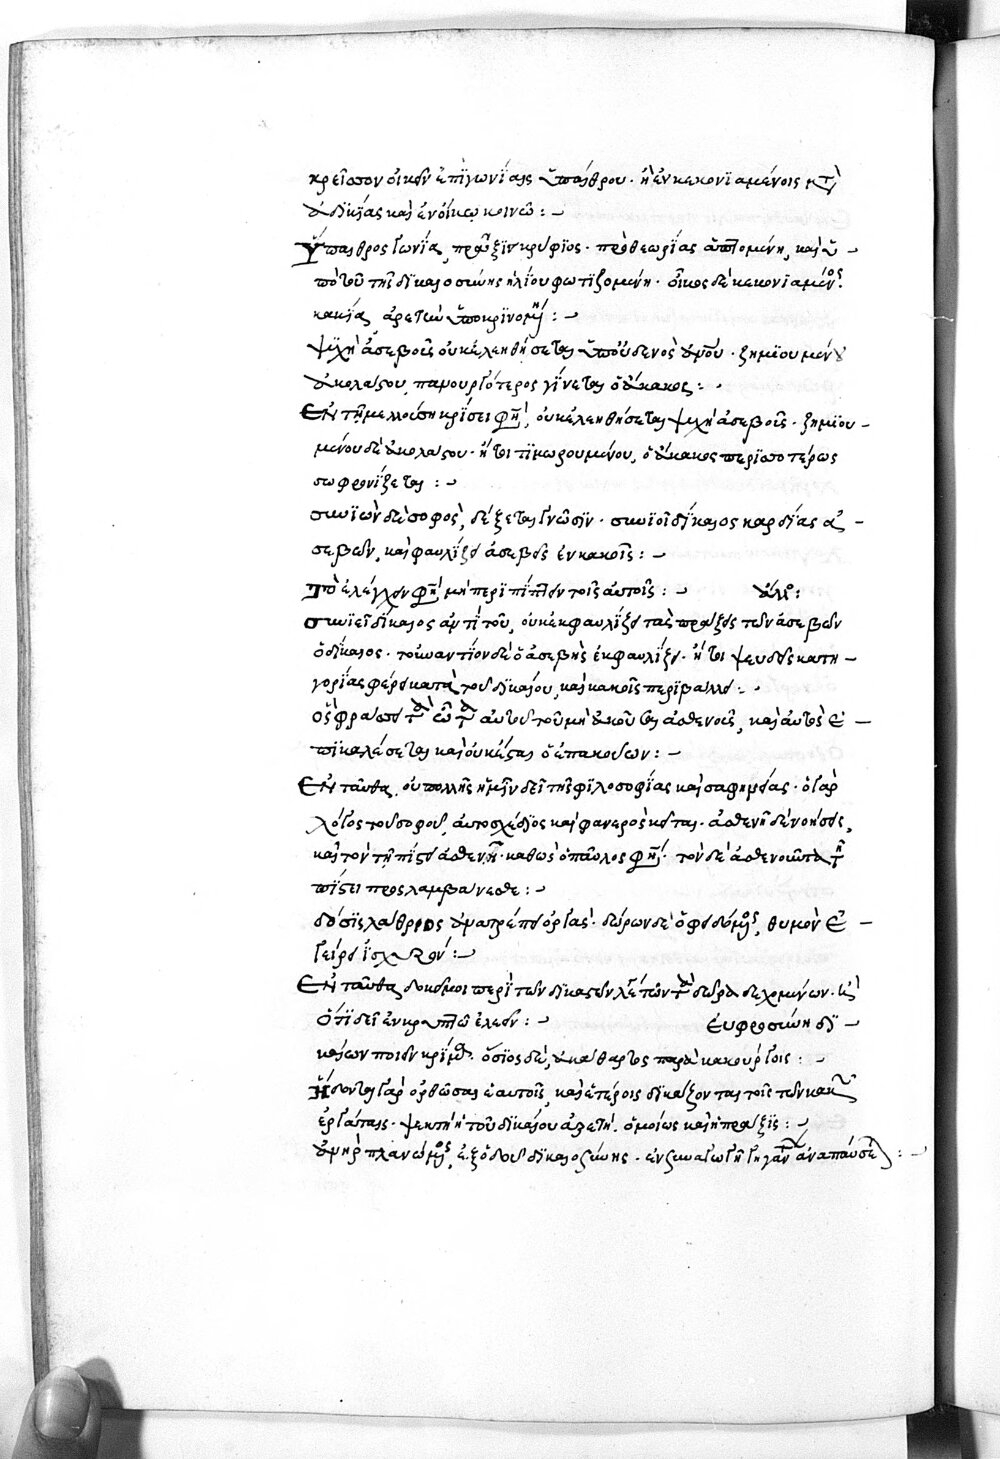 κρεῖσσον οἰκεῖν ἐπὶ γωνίαις ὑπαίθρου· ἢ ἐν κεκονιαμένοις μετὰ
ἀδικίας καὶ ἐν οἴκῳ κοινῷ:
Ὕπαιθρος γωνία, πρᾶξιν κρύφιος· πρὸ θεωρίας ἁπτομένη, καὶ ὑ
πὸ τοῦ τῆς δικαιοσύνης ἡλίου φωτιζομένη· οἶκος δὲ κεκονιαμένος
κακία ἀρετὴν ὑποκρινομένη:
ψυχὴ ἀσεβοῦς οὐκ ἐλεηθήσεται ὑπ' οὐδενὸς ἀνθρώπου· ζημιουμένου
ἀκολάστου, πανουργότερος γίνεται ὁ ἄκακος:
Ἐν τῇ μελλούσῃ κρίσει φησί, οὐκ ἐλεηθήσεται ψυχὴ ἀσεβοῦς· ζημιου
μένου δὲ ἀκολάστου· ἤτοι τιμωρουμένου, ὁ ἄκακος περισσοτέρως
σωφρονίζεται:
συνιὼν δὲ σοφὸς, δέξεται γνῶσιν· συνιοῖ δίκαιος καρδίας ἀ
σεβῶν, καὶ φαυλίζει ἀσεβεῖς ἐν κακοῖς:
Τὸ ἐλέγχειν φησί μὴ περιπίπτειν τοῖς αὐτοῖς: ἄλλο:
συνιεῖ δίκαιος ἀντὶ τοῦ, οὐκ ἐκφαυλίζει τὰς πράξεις τῶν ἀσεβῶν
ὁ δίκαιος· τοὐναντίον δὲ ὁ ἀσεβὴς ἐκφαυλίζει· ἤτοι ψευδεῖς κατη
γορίας φέρει κατὰ τοῦ δικαίου, καὶ κακοῖς περιβάλλει:
ὃς φράσσει τὰ ὦτα αὐτοῦ τοῦ μὴ ἀκοῦσαι ἀσθενοῦς, καὶ αὐτὸς ἐ
πικαλέσεται καὶ οὐκ ἔσται ὁ ἐπακούων:
Ἐνταῦθα, οὐ πολλῆς ἡμῖν δεῖ τῆς φιλοσοφίας καὶ σαφηνείας· ὁ γὰρ
λόγος τοῦ σοφοῦ, αὐτοσχέδιος καὶ φανερὸς κεῖται· ἀσθενῆ δὲ νοήσεις,
καὶ τὸν τῇ πίστει ἀσθενῆ· καθὼς ὁ παῦλος φησί· τὸν δὲ ἀσθενοῦντα τῇ
πίστει προσλαμβάνεσθε:
δόσις λάθριος ἀνατρέπει ὀργάς· δώρων δὲ ὁ φειδόμενος, θυμὸν ἐ
γείρει ἰσχυρόν:
Ἐνταῦθα δοκεῖ μοι περὶ τῶν δικαστῶν λέγειν τῶν τὰ δῶρα δεχομένων· καὶ
ὅτι δεῖ ἐν κρυπτῷ ἐλεεῖν: εὐφροσύνη δι
καίων ποιεῖν κρίμα· ὅσιος δὲ, ἀκάθαρτος παρὰ κακούργοις:
Ἥδονται γὰρ ὀρθῶσαι ἑαυτοῖς, καὶ ἑτέροις δικάζονται τοῖς τῶν κακῶν
ἐργάταις· ψεκτὴ ἡ τοῦ δικαίου ἀρετή. ὁμοίως καὶ ἡ πρᾶξις:
ἀνὴρ πλανώμενος, ἐξ ὁδοῦ δικαιοσύνης· ἐν συναγωγῇ γιγάντων ἀναπαύσεται: